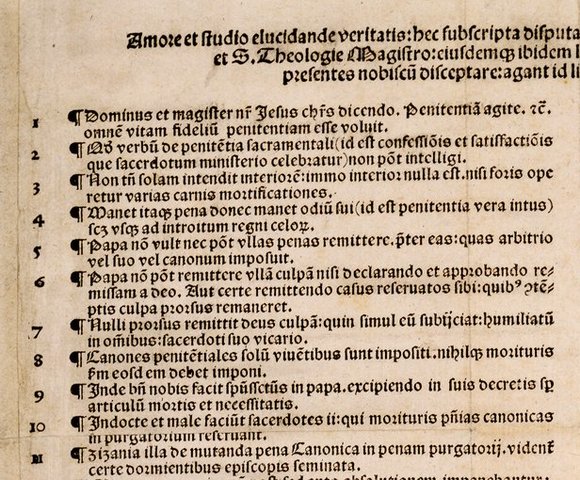 Amore et studio elucidande veritatis: hec subscripta disputa
et S. Theologie Magistro: eiusdemq̃ ibidem l
presentes nobiscũ disceptare: agant id li
1 ¶ Dominus et magister nr̃ Jesus chr̃s dicendo. Penitentiã agite. ⁊c̃.
omnẽ vitam fideliũ penitentiam esse voluit.
2 ¶ Qd̃ verbũ de penitẽtia sacramentali (id est confessiõis et satisfactiõis
que sacerdotum ministerio celebratur) non põt intelligi.
3 ¶ Non tñ solam intendit interiorẽ: immo interior nulla est. nisi foris ope
retur varias carnis mortificationes.
4 ¶ Manet itaq̃ pena donec manet odiũ sui (id est penitentia vera intus)
scꝫ vsq̃ ad introitum regni celoꝝ.
5 ¶ Papa nõ vult nec põt vllas penas remittere. p̃ter eas: quas arbitrio
vel suo vel canonum imposuit.
6 ¶ Papa nõ põt remittere vllã culpã nisi declarando et approbando re-
missam a deo. Aut certe remittendo casus reseruatos sibi: quibꝰ ↄtẽ-
ptis culpa prorsus remaneret.
7 ¶ Nulli prorsus remittit deus culpã: quin simul eũ subijciat: humiliatũ
in om̃ibus: sacerdoti suo vicario.
8 ¶ Canones penitẽtiales solũ viuẽtibus sunt impositi. nihilq̃ morituris
ꝑm eosdem debet imponi.
9 ¶ Inde bñ nobis facit spũssctũs in papa. excipiendo in suis decretis sꝑ
articulũ mortis et necessitatis.
10 ¶ Indocte et male faciũt sacerdotes ii: qui morituris pñias canonicas
in purgatorium reseruant.
11 ¶ Zizania illa de mutanda pena Canonica in penam purgatorij. videnẽ
certe dormientibus episcopis seminata.